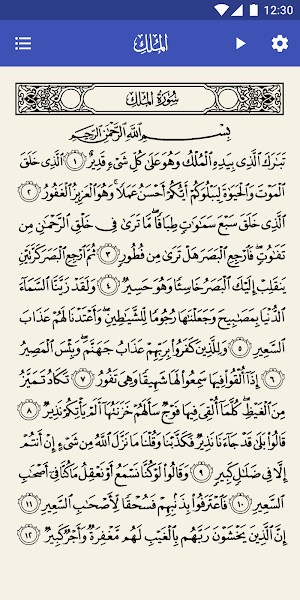 12:30
الملك
سُورَةُ المُلْكِ
بِسْمِ ٱللَّهِ ٱلرَّحْمَٰنِ ٱلرَّحِيمِ
تَبَٰرَكَ ٱلَّذِى بِيَدِهِ ٱلْمُلْكُ وَهُوَ عَلَىٰ كُلِّ شَىْءٍ قَدِيرٌ ١ ٱلَّذِى خَلَقَ
ٱلْمَوْتَ وَٱلْحَيَوٰةَ لِيَبْلُوَكُمْ أَيُّكُمْ أَحْسَنُ عَمَلًا وَهُوَ ٱلْعَزِيزُ ٱلْغَفُورُ ٢
ٱلَّذِى خَلَقَ سَبْعَ سَمَٰوَٰتٍ طِبَاقًا مَّا تَرَىٰ فِى خَلْقِ ٱلرَّحْمَٰنِ مِن
تَفَٰوُتٍ فَٱرْجِعِ ٱلْبَصَرَ هَلْ تَرَىٰ مِن فُطُورٍ ٣ ثُمَّ ٱرْجِعِ ٱلْبَصَرَ كَرَّتَيْنِ
يَنقَلِبْ إِلَيْكَ ٱلْبَصَرُ خَاسِئًا وَهُوَ حَسِيرٌ ٤ وَلَقَدْ زَيَّنَّا ٱلسَّمَآءَ
ٱلدُّنْيَا بِمَصَٰبِيحَ وَجَعَلْنَٰهَا رُجُومًا لِّلشَّيَٰطِينِ وَأَعْتَدْنَا لَهُمْ عَذَابَ
ٱلسَّعِيرِ ٥ وَلِلَّذِينَ كَفَرُوا۟ بِرَبِّهِمْ عَذَابُ جَهَنَّمَ وَبِئْسَ ٱلْمَصِيرُ
٦ إِذَآ أُلْقُوا۟ فِيهَا سَمِعُوا۟ لَهَا شَهِيقًا وَهِىَ تَفُورُ ٧ تَكَادُ تَمَيَّزُ
مِنَ ٱلْغَيْظِ كُلَّمَآ أُلْقِىَ فِيهَا فَوْجٌ سَأَلَهُمْ خَزَنَتُهَآ أَلَمْ يَأْتِكُمْ نَذِيرٌ ٨
قَالُوا۟ بَلَىٰ قَدْ جَآءَنَا نَذِيرٌ فَكَذَّبْنَا وَقُلْنَا مَا نَزَّلَ ٱللَّهُ مِن شَىْءٍ إِنْ أَنتُمْ
إِلَّا فِى ضَلَٰلٍ كَبِيرٍ ٩ وَقَالُوا۟ لَوْ كُنَّا نَسْمَعُ أَوْ نَعْقِلُ مَا كُنَّا فِىٓ أَصْحَٰبِ
ٱلسَّعِيرِ ١٠ فَٱعْتَرَفُوا۟ بِذَنۢبِهِمْ فَسُحْقًا لِّأَصْحَٰبِ ٱلسَّعِيرِ ١١
إِنَّ ٱلَّذِينَ يَخْشَوْنَ رَبَّهُم بِٱلْغَيْبِ لَهُم مَّغْفِرَةٌ وَأَجْرٌ كَبِيرٌ ١٢